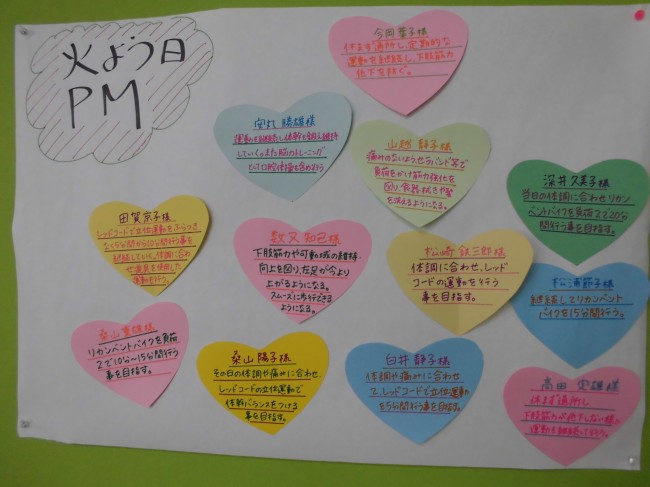 火よう日
PM
今岡 葉子様
休まず通所し、定期的な
運動を継続し、下肢筋力
低下を防ぐ。
安丸 勝雄様
運動を継続し体幹を鍛え維持
していく。また筋力トレーニング
山越 静子様
痛みのないようセラバンド等で
負荷をかけ筋力強化を
図り、食器拭きや髪
を洗えるようになる。
深井久美子様
当日の体調に合わせリカン
ベントバイクを負荷2で20分
間行う事を目指す。
田賀京子様
レッドコードで立位運動をふらつき
なく5分間から10分間行う事を
継続していく。体調に合わ
せ道具を使用した
運動を行う。
数又 知己様
下肢筋力や可動域の維持
向上を図り、左足が今より
上がるようになる。
スムーズに歩行できる
ようになる。
松崎 鉄三郎様
体調に合わせ、レッド
コードの運動を行う
事を目指す。
松浦節子様
継続してリカンベント
バイクを15分間行う。
桑山重雄様
リカンベントバイクを負荷
2で10分〜15分間行う
事を目指す。
桑山 陽子様
その日の体調や痛みに合わせ、
レッドコードの立位運動で
体幹バランスをつける
事を目指す。
白井 静子様
体調や痛みに合わせ
て、レッドコードで立位運動
を5分間行う事を目指す。
高田 定雄様
休まず通所し
下肢筋力が低下しない様に
運動を継続して行う。